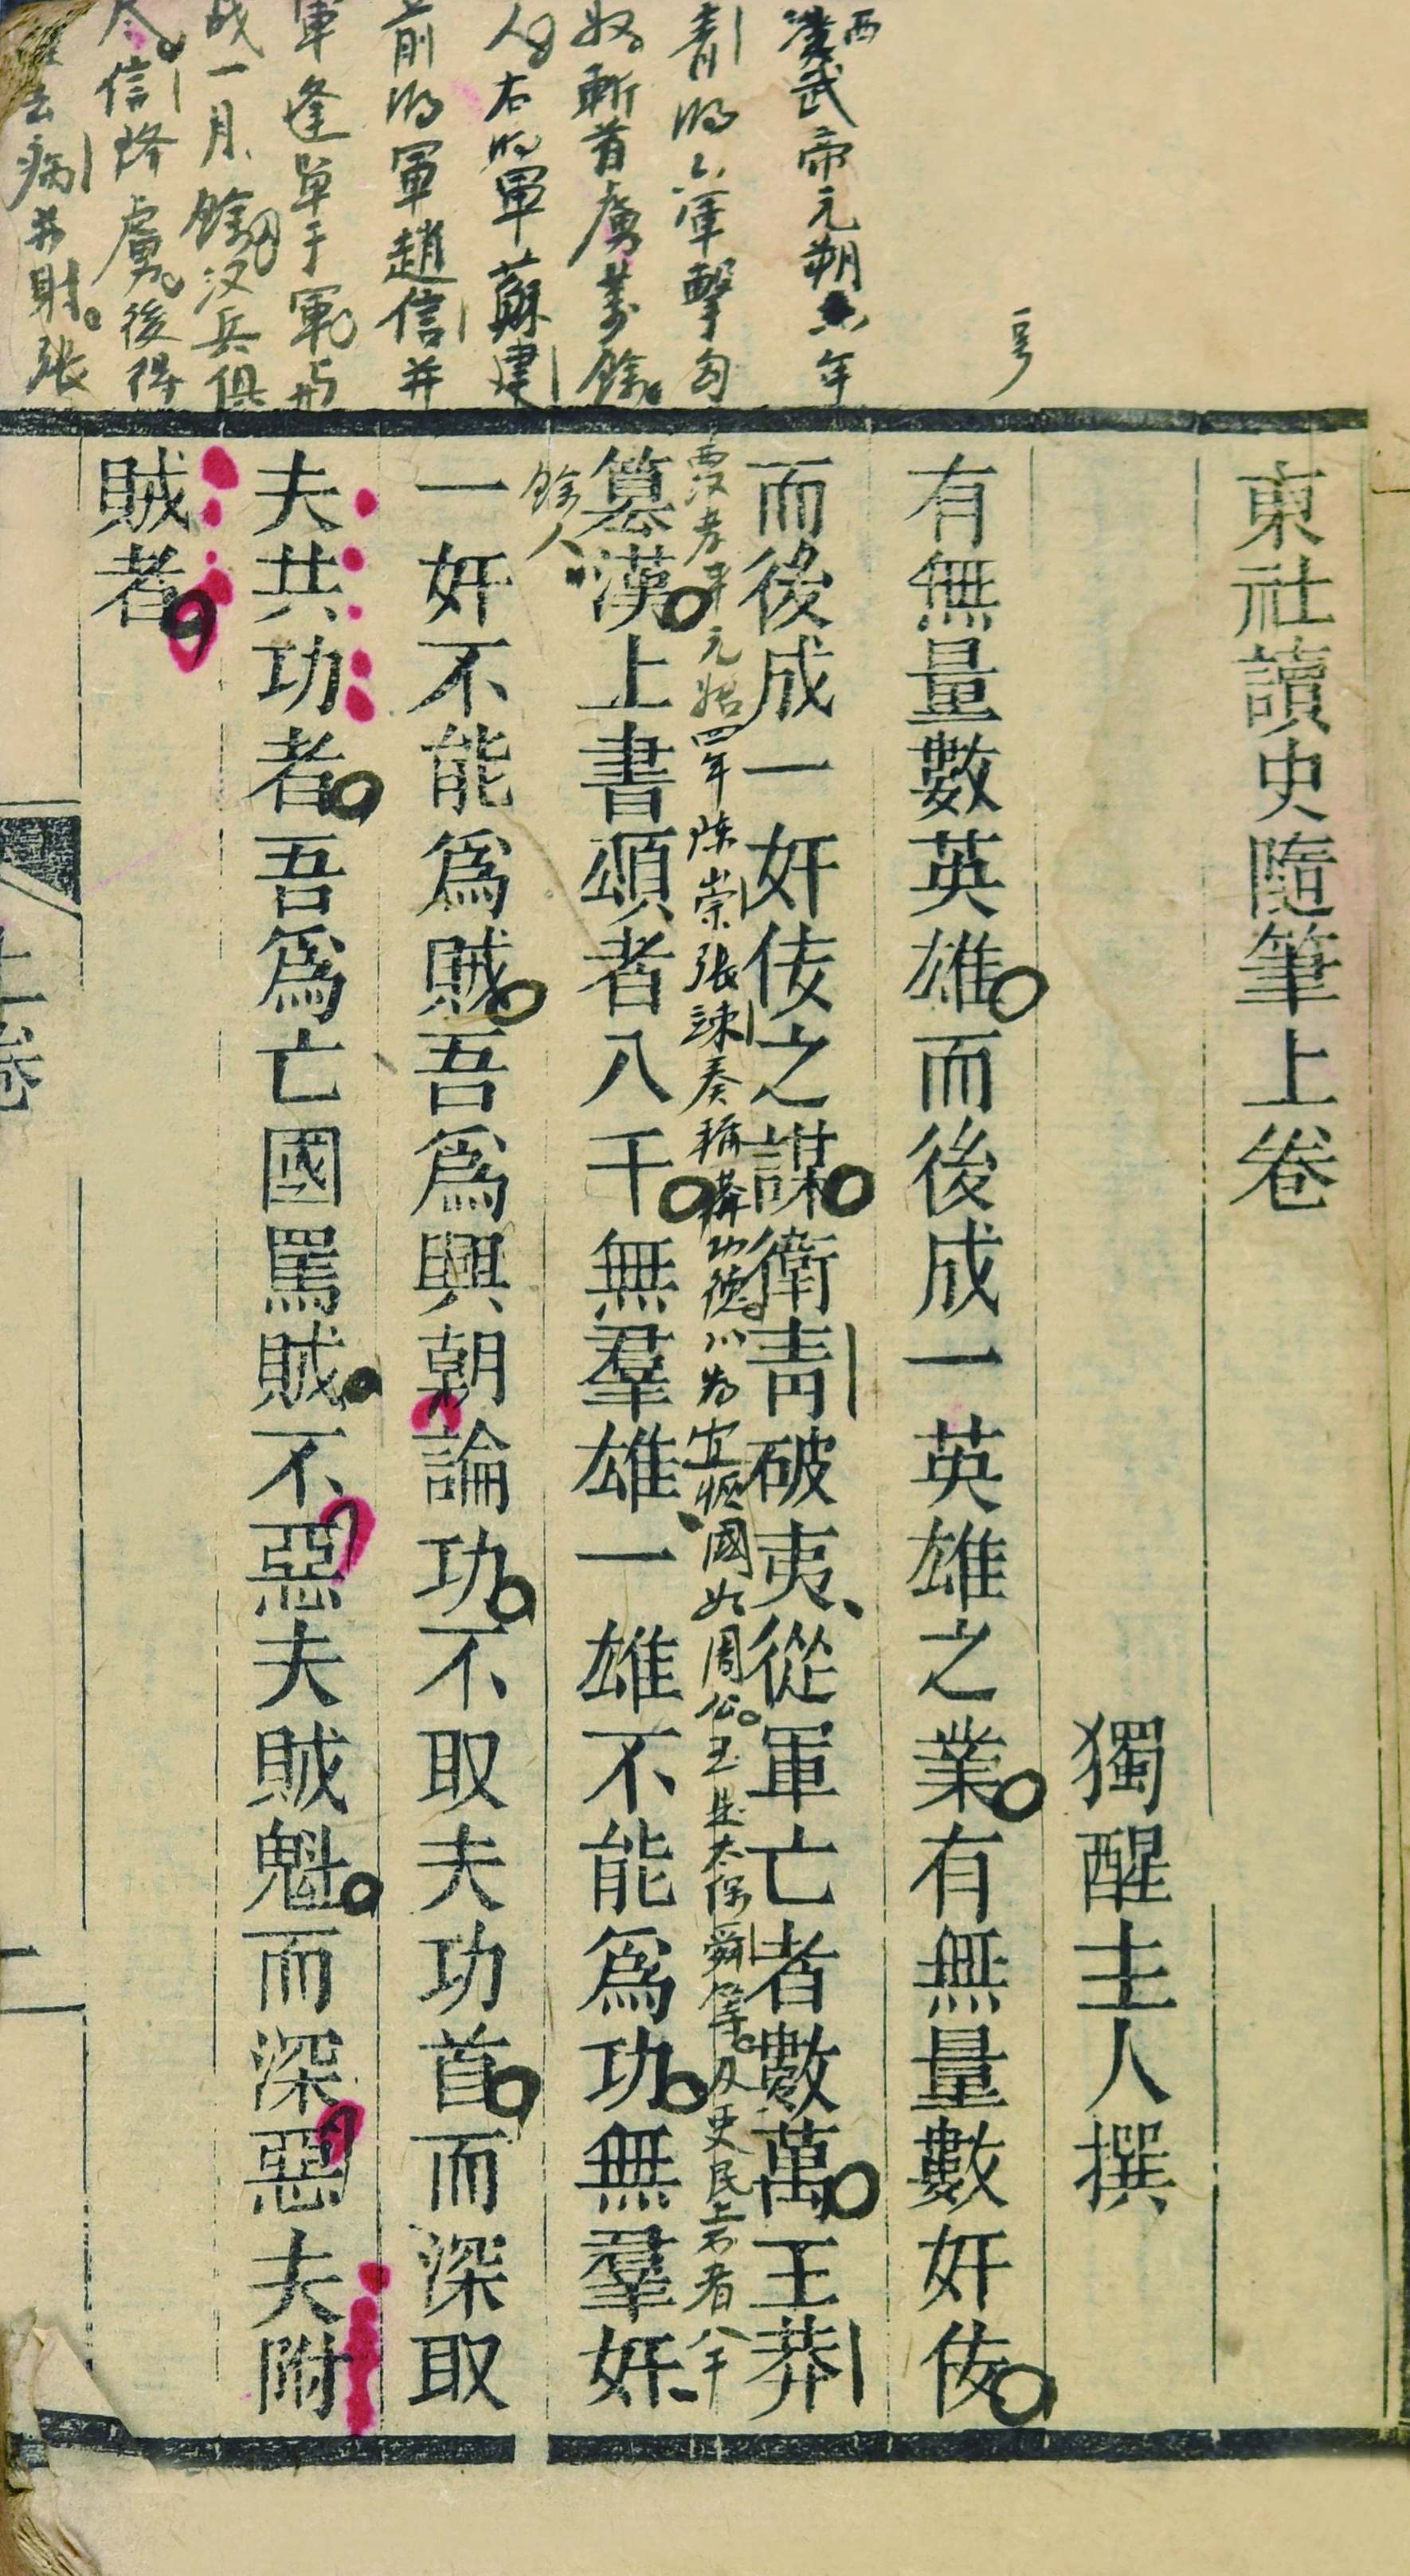 東社讀史隨筆上卷
獨醒主人撰
有無量數英雄而後成一英雄之業有無量數奸佞
而後成一奸佞之謀衛青破夷從軍亡者數萬王莽
篡漢上書頌者八千無羣雄一雄不能爲功無羣奸
一奸不能爲賊吾爲興朝論功不取夫功首而深取
夫共功者吾爲亡國罵賊不惡夫賊魁而深惡夫附
賊者
西
漢武帝元朔 年
青将六軍擊匈
奴斬首虜萬餘
人右将軍蘇建
前将軍趙信并
軍逢單于軍与
战一月餘汉兵俱
尽信降虜後得
去病并財張
西汉孝平元始四年陈崇张竦奏稱莽功德以为宜恢國如周公 太保舜等及吏民上书者八千
餘人
上卷